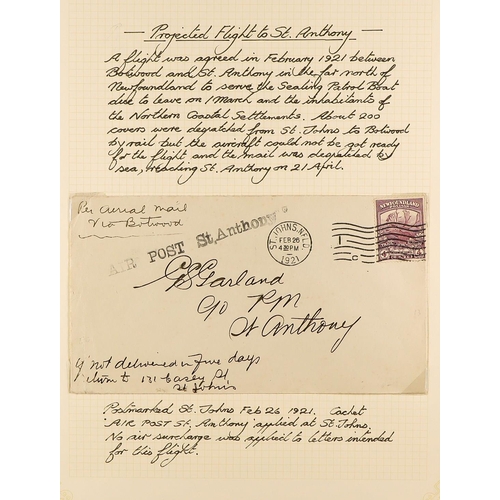 Projected Flight to St. Anthony
A flight was agreed in February 1921 between
Botwood and St. Anthony in the far north of
Newfoundland to serve the Sealing Patrol Boat
due to leave on 1 March and the inhabitants of
the Northern Coastal Settlements. About 200
covers were despatched from St. Johns to Botwood
by rail but the aircraft could not be got ready
for the flight and the mail was despatched by
sea, reaching St. Anthony on 21 April.
Per aerial mail
via Botwood
AIR POST St. Anthony
ST. JOHN'S, NFLD.
FEB 26
4 PM
1921
NEWFOUNDLAND
Garland
c/o P.M
St Anthony
if not delivered in five days
return to 131 Casey St
St John's
Postmarked St. Johns Feb 26 1921. Cachet
'AIR POST St. Anthony' applied at St. Johns.
No air surcharge was applied to letters intended
for this flight.